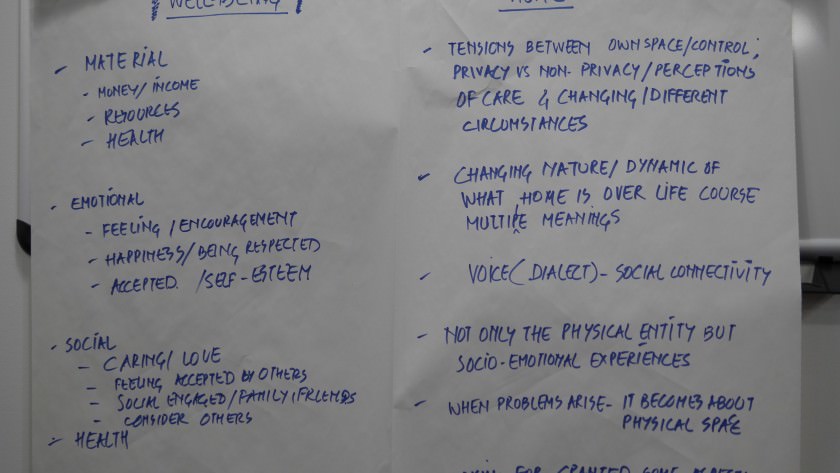 WELL-BEING
- MATERIAL
- MONEY/ INCOME
- RESOURCES
- HEALTH
- EMOTIONAL
- FEELING / ENCOURAGEMENT
- HAPPINESS/ BEING RESPECTED
- ACCEPTED. /SELF-ESTEEM
- SOCIAL
- CARING/ LOVE
- FEELING ACCEPTED BY OTHERS
- SOCIAL ENGAGED/FAMILY, FRIENDS
- CONSIDER OTHERS
- HEALTH
HOME
- TENSIONS BETWEEN OWN SPACE/CONTROL;
PRIVACY VS NON-PRIVACY/PERCEPTIONS
OF CARE & CHANGING/DIFFERENT
CIRCUMSTANCES
- CHANGING NATURE/ DYNAMIC OF
WHAT HOME IS OVER LIFE COURSE
MULTIPLE MEANINGS
- VOICE(DIALECT)- SOCIAL CONNECTIVITY
- NOT ONLY THE PHYSICAL ENTITY BUT
SOCIO-EMOTIONAL EXPERIENCES
- WHEN PROBLEMS ARISE- IT BECOMES ABOUT
PHYSICAL SPACE
FOR GRANTED